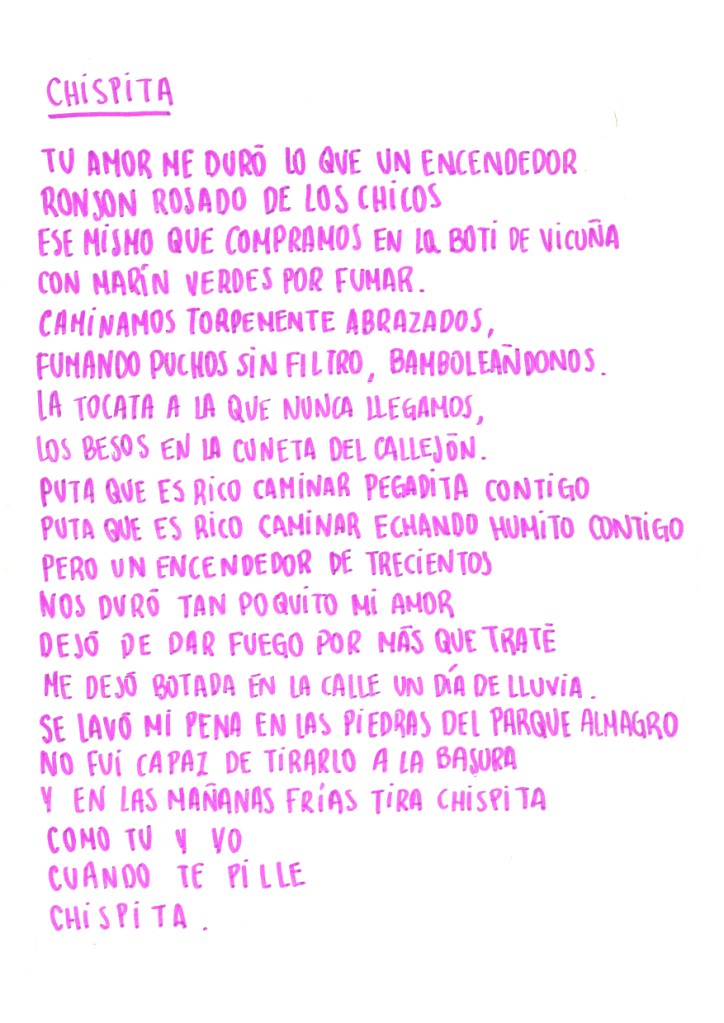 CHISPITA
TU AMOR ME DURÓ LO QUE UN ENCENDEDOR
RONSON ROSADO DE LOS CHICOS
ESE MISMO QUE COMPRAMOS EN LA BOTI DE VICUÑA
CON MARÍN VERDES POR FUMAR.
CAMINAMOS TORPEMENTE ABRAZADOS,
FUMANDO PUCHOS SIN FILTRO, BAMBOLEAÑDONOS.
LA TOCATA A LA QUE NUNCA LLEGAMOS,
LOS BESOS EN LA CUNETA DEL CALLEJÓN.
PUTA QUE ES RICO CAMINAR PEGADITA CONTIGO
PUTA QUE ES RICO CAMINAR ECHANDO HUMITO CONTIGO
PERO UN ENCENDEDOR DE TRECIENTOS
NOS DURÓ TAN POQUITO MI AMOR
DEJÓ DE DAR FUEGO POR MÁS QUE TRATÉ
ME DEJÓ BOTADA EN LA CALLE UN DÍA DE LLUVIA.
SE LAVÓ MI PENA EN LAS PIEDRAS DEL PARQUE ALMAGRO
NO FUI CAPAZ DE TIRARLO A LA BASURA
Y EN LAS MAÑANAS FRÍAS TIRA CHISPITA
COMO TU Y YO
CUANDO TE PILLE
CHISPITA.